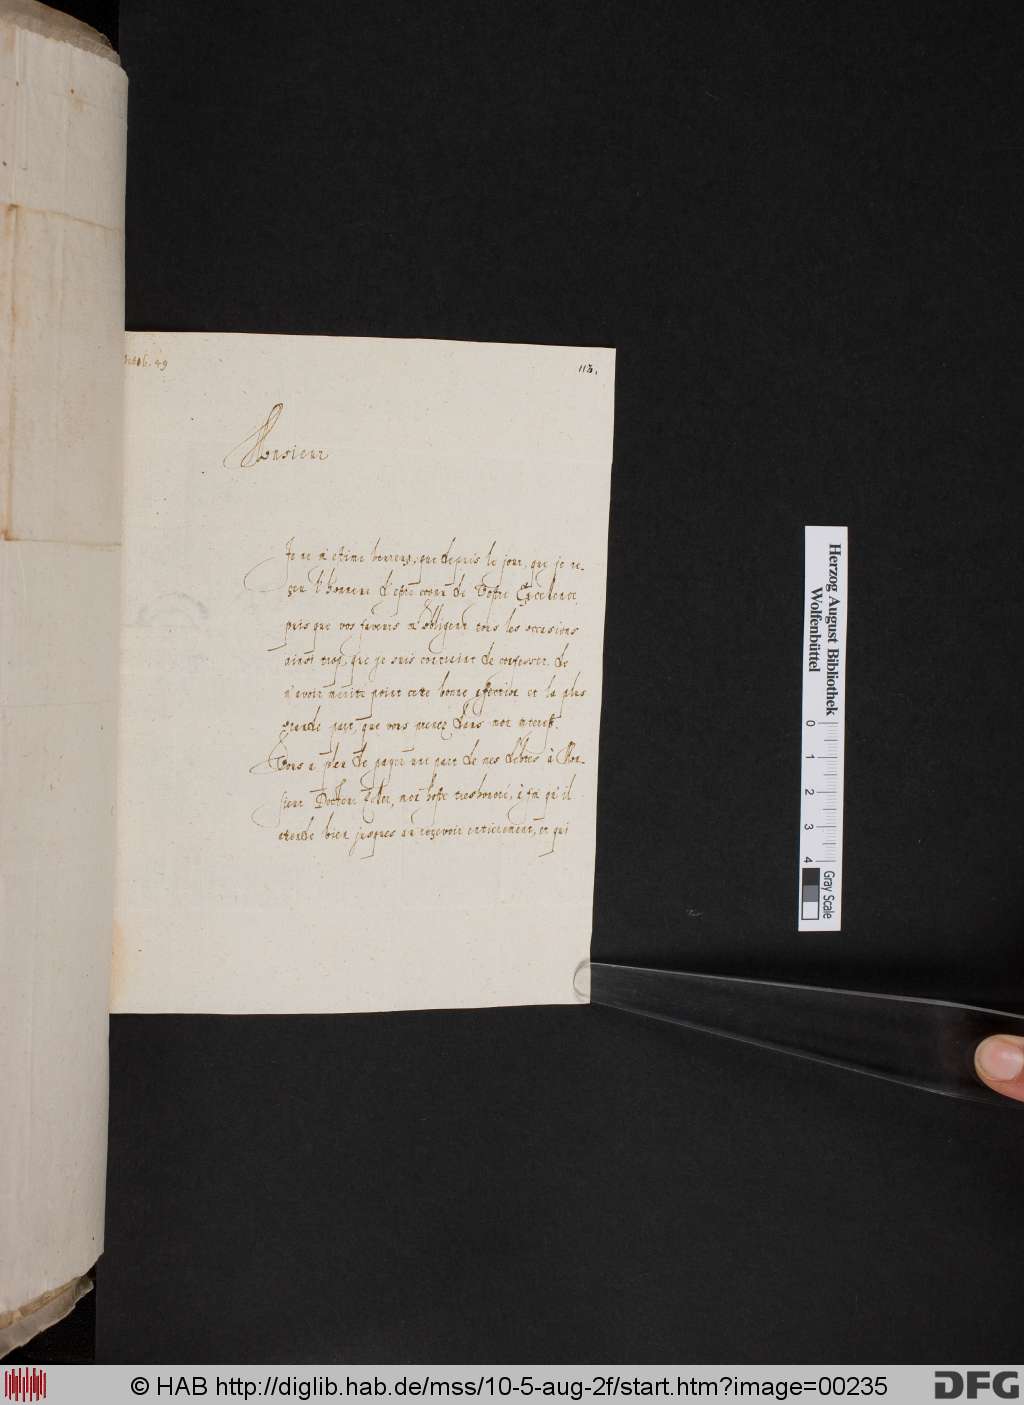 113.
Monsieur
Je ne m'estime heureux, que depuis le jour, que je re-
ceu l'honneur d'estre cognu de Vostre Excellence,
puis que vos faveurs m'obligent tous les occasions
ainsi trop, que je suis contraint de confesser, de
n'avoir merité point cette bonne affection et la plus
grande part, que vous prenez dans mon interest.
Vous a pleu de payer une part de mes debtes à Mon-
sieur Docteur, mon hoste treshonoré, à fin qu'il
attende bien jusques au recevoir entierement, et qui
Herzog August Bibliothek
Wolfenbüttel
0 1 2 3 4
Gray Scale
© HAB http://diglib.hab.de/mss/10-5-aug-2f/start.htm?image=00235
DFG